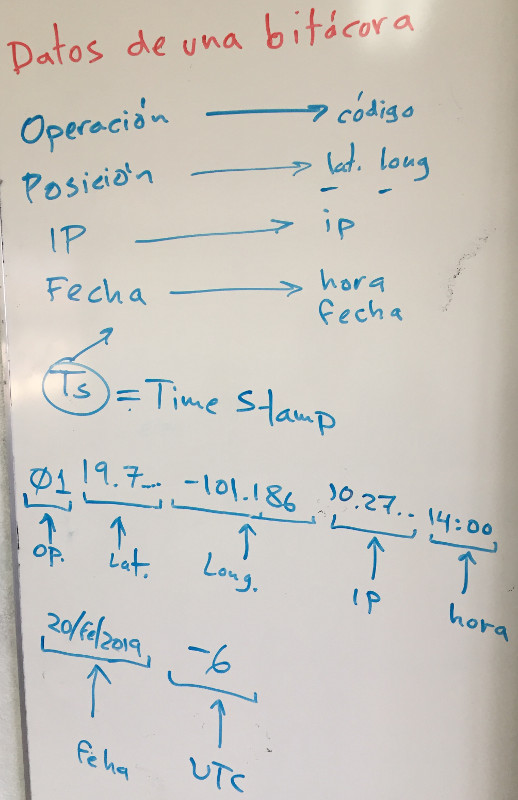 Datos de una bitácora
Operación → código
Posición → lat. long
IP → ip
Fecha → hora
fecha
Ts = Time Stamp
Ø1 19.7... -101.186 10.27.. 14:00
OP. Lat. Long. IP hora
20/Fe/2019 -6
Feha UTC